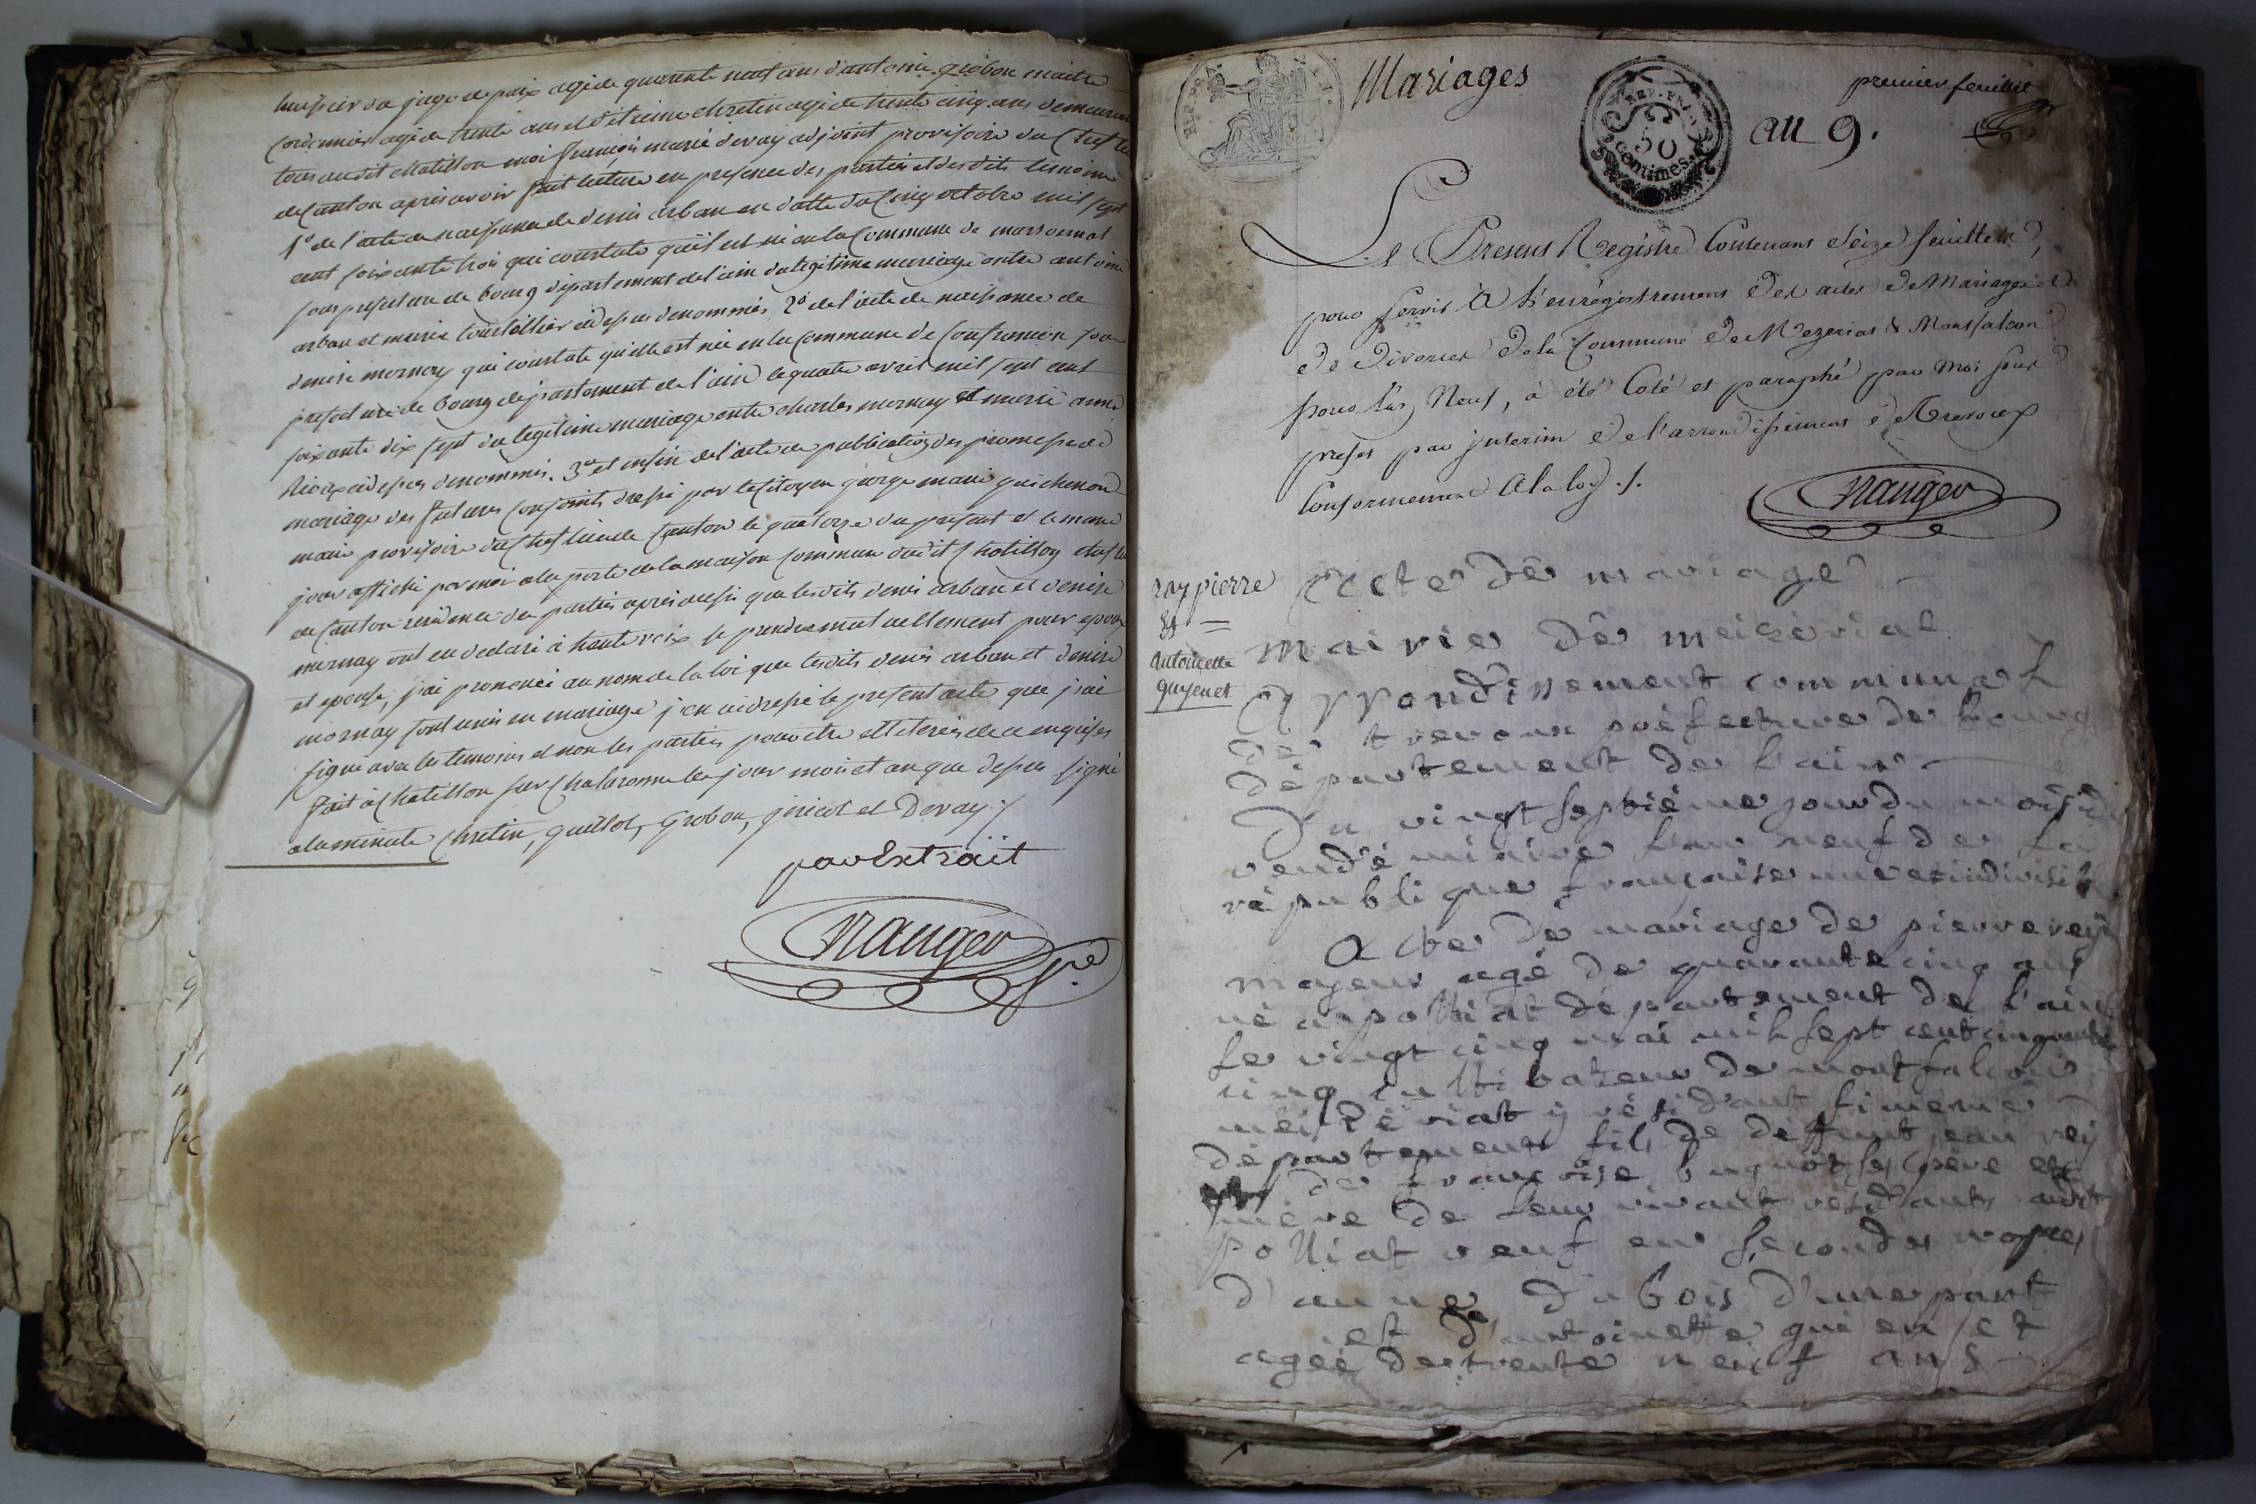 huissier du juge de paix agé de quarante neuf ans d'antoine grobon maitre
cordonnier agé de trente ans et d'etienne chretin agé de trente cinq ans demeurant
tous audit chatillon moi françois marie devay adjoint provisoire du Chef lieu
de Canton après avoir fait lecture en presence des parties et desdits temoins
1° de l'acte de naissance de denis arban en datte du Cinq octobre mil sept
cent soixante trois qui constate qu'il est né en la Commune de marsonnas
sous prefecture de bourg département de l'ain du legitime mariage entre antoine
arban et marie tourtellier ci dessus denommés, 2° de l'acte de naissance de
denise mornay qui constate qu'elle est née en la Commune de Confrancon sous
prefecture de bourg département de l'ain le quatre avril mil sept cent
soixante dix sept du legitime mariage entre charles mornay et marie anne
ci dessus denommés. 3° et enfin de l'acte de publication des promesses de
mariage des futurs Conjoints dressé par le Citoyen george marie guichenon
maire provisoire du Chef lieu de Canton le quatorze du present et le meme
jour affiché par moi a la porte de la maison Commune dudit Chatillon chef lieu
de Canton residence des parties après aussi que lesdits denis arban et denise
mornay ont eu declaré à haute voix se prendre mutuellement pour epoux
et epouse, j'ai prononcé au nom de la loi que lesdits denis arban et denise
mornay sont unis en mariage j'en ai dressé le present acte que j'ai
signé avec les temoins et non les parties pour etre illiterées de ce enquises
fait à Chatillon sur Chalaronne les jour mois et an que dessus signé
a la minute Chretin, guillot, Grobon, jericot et Devay ./.
par Extrait
Nauger
Mariages
premier feuillet
REP. FRA.
50
centimes.
an 9.
Le Present Registre Contenant Seize feuillets,
pour servir a l'enregistrement des actes de Mariages et
de divorces de la Commune de Mezeriat & Monfalcon
pour l'an Neuf, à été Coté et paraphé par Moi sous
prefet par interim de l'arrondissement de Trevoux
Conformement a la loy ./.
Nauger
ray pierre
&
antoinette
guyenet
Acte dê mariage
mairie dê meiseriat
Arrondissement communal
de trevoux prefecture de bourg
département de l'ain
Du vingt septiême jour du mois de
vendémiaire l'an neuf de la
république française une et indivisible
Acte de mariage de pierre rey
majeur agé de quarante cinq ans
né a polliat département de l'ain
le vingt cinq mai mil sept cent cinquante
cinq cultivateur de montfalcon
meizériat y résidant
département fils de deffunt jean rey
de françoise bugnot ses père et
mère de leur vivant résidants audit
polliat veuf en secondes nopces
d'anne dubois d'une part
et d'antoinette guienet
agée de trente neuf ans